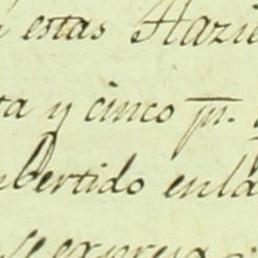 estas Hazie
ta y cinco p.
nbertido enla
se expresa